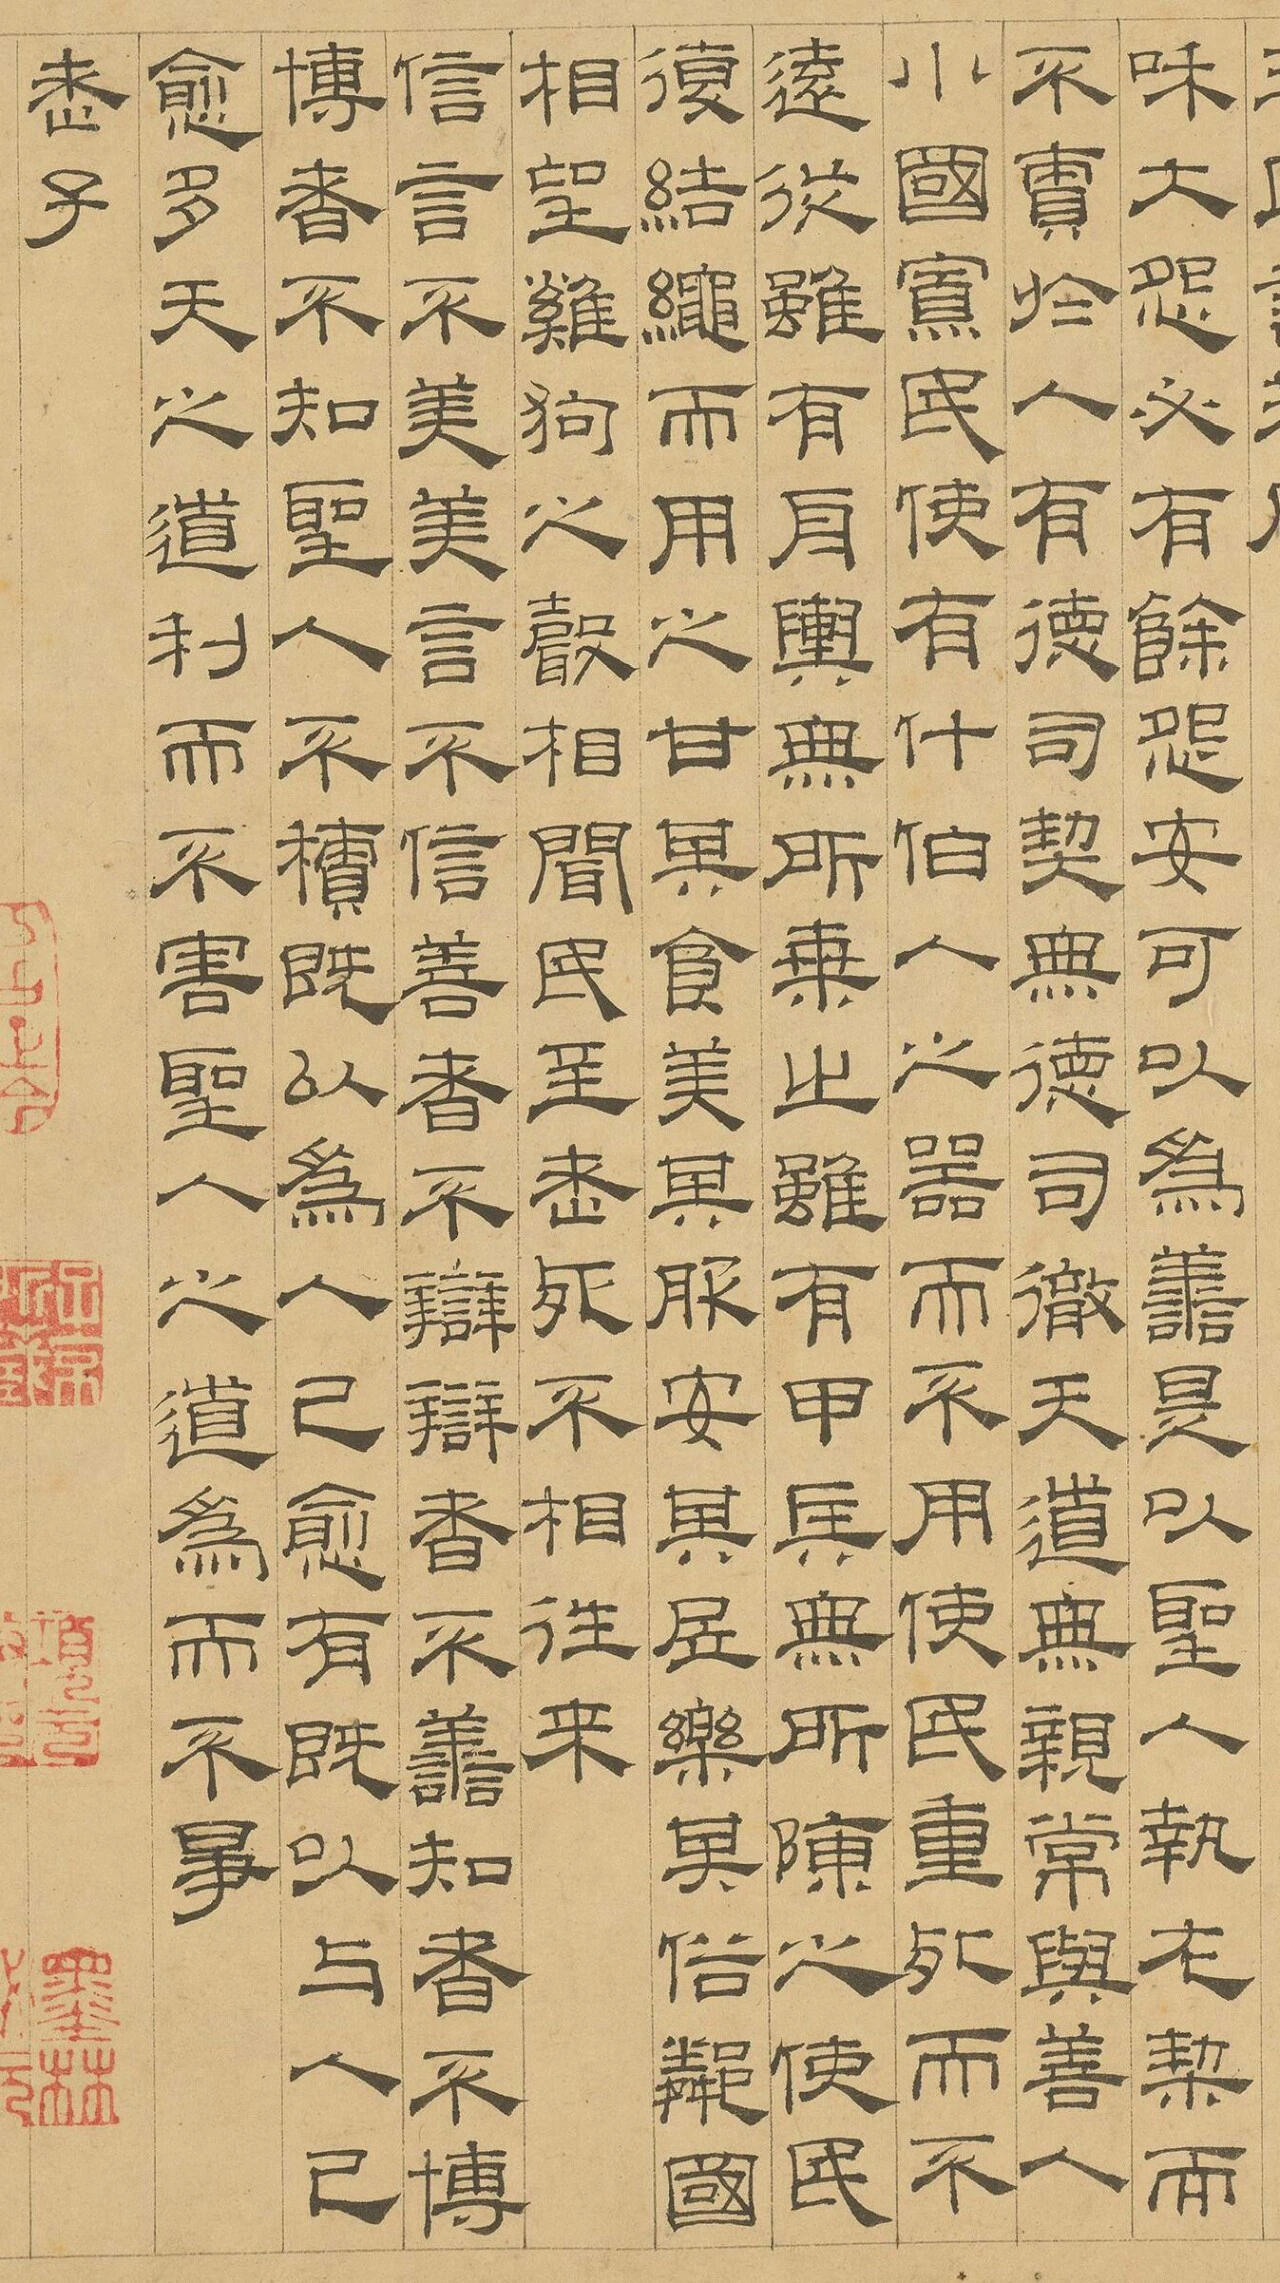 味大怨必有餘怨安可以為善是以聖人執左契而
不責於人有德司契無德司徹天道無親常與善人
小國寡民使有什伯人之器而不用使民重死而不
遠徙雖有舟輿無所乗之雖有甲兵無所陳之使民
復結繩而用之甘其食美其服安其居樂其俗鄰國
相望雞狗之聲相聞民至老死不相往来
信言不美美言不信善者不辯辯者不善知者不博
博者不知聖人不積既以為人己愈有既以与人己
愈多天之道利而不害聖人之道為而不爭
老子
墨林